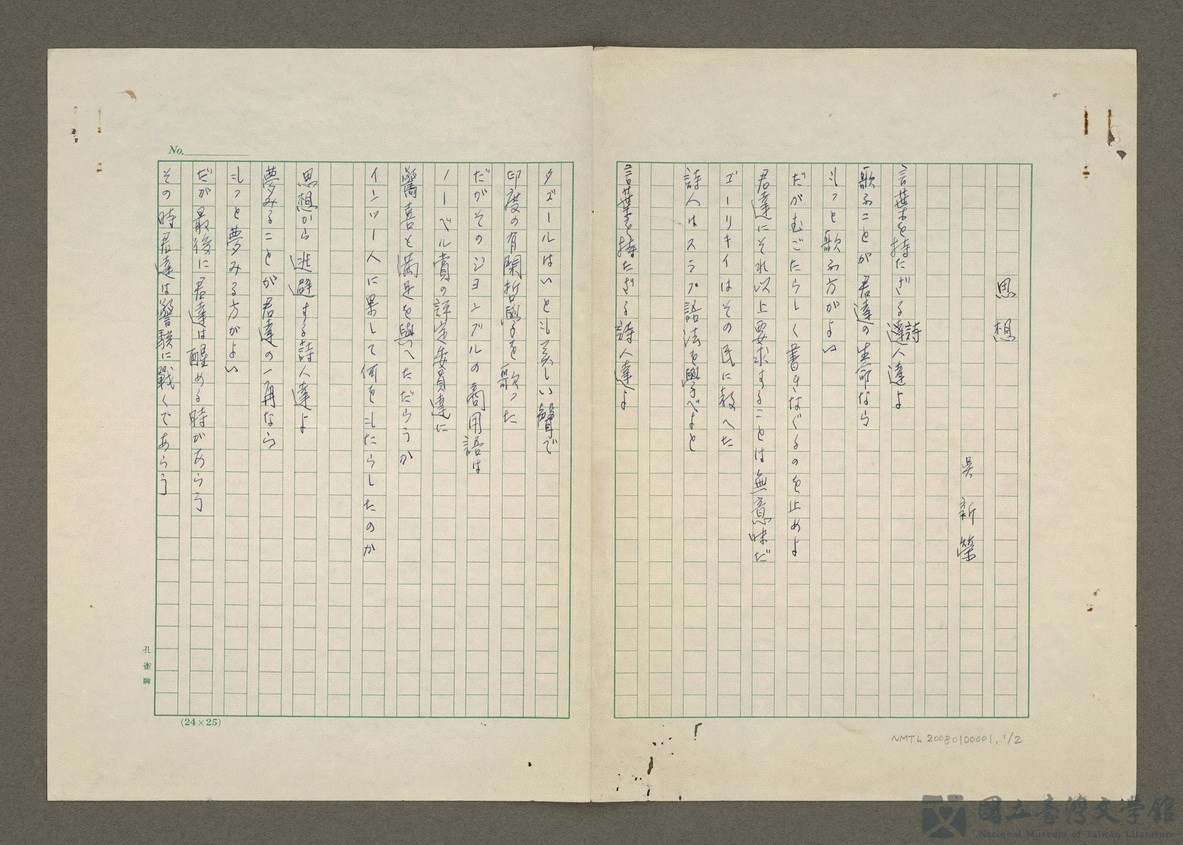 思想
吳新榮
言葉を持たざる詩人達よ
歌ふことが君達の生命なら
もつと歌ふ方がよい
だがむごたらしく書きなぐるのを止めよ
君達にそれ以上要求することは無意味だ
ゴーリキイはその民に教へた
詩人はスラブ語法を學べよと
言葉を持たざる詩人達よ
タゴールはいとも美しい聲で
印度の有閑哲學を歌つた
だがそのジヨンブルの商用語は
ノーベル賞の評定委員達に
驚喜と満足を與へただらうが
インヅー人に果して何をもたらしたのか
思想から逃避する詩人達よ
夢みることが君達の一再なら
もつと夢みる方がよい
だが最後に君達は醒める時があらう
その時君達は警駭に戰くであらう
No.
(24×25)
孔雀牌
NMTL 20080100001, 1/2
國立臺灣文學館
National Museum of Taiwan Literature